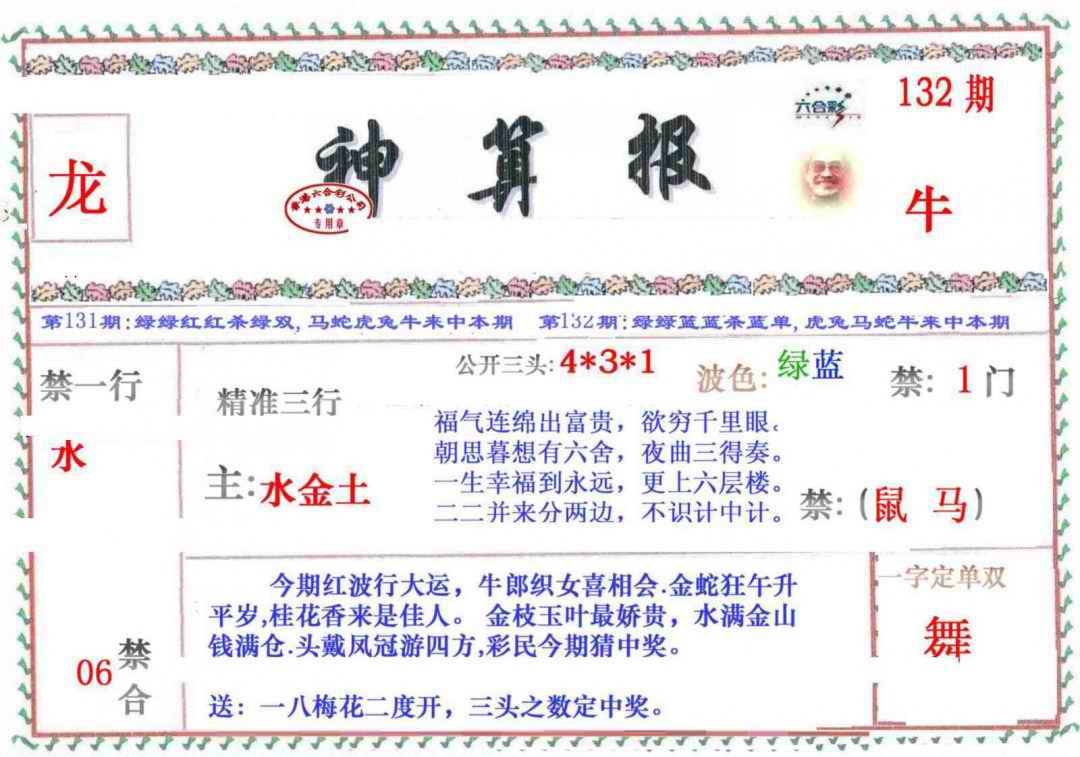 132期
六合彩
龙
神算报
香港六合彩公司
专用章
牛
第131期:绿绿红红杀绿双,马蛇虎兔牛来中本期
第132期:绿绿蓝蓝杀蓝单,虎兔马蛇牛来中本期
禁一行
水
精准三行
主:水金土
公开三头:4*3*1
波色:绿蓝
禁:1门
福气连绵出富贵，欲穷千里眼。
朝思暮想有六舍，夜曲三得奏。
一生幸福到永远，更上六层楼。
二二并来分两边，不识计中计。
禁:(鼠 马)
06
禁合
今期红波行大运，牛郎织女喜相会.金蛇狂午升
平岁,桂花香来是佳人。金枝玉叶最娇贵，水满金山
钱满仓.头戴凤冠游四方,彩民今期猜中奖。
送：一八梅花二度开，三头之数定中奖。
一字定单双
舞